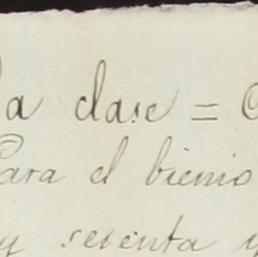 a clase =
Para el bienio
y sesenta y